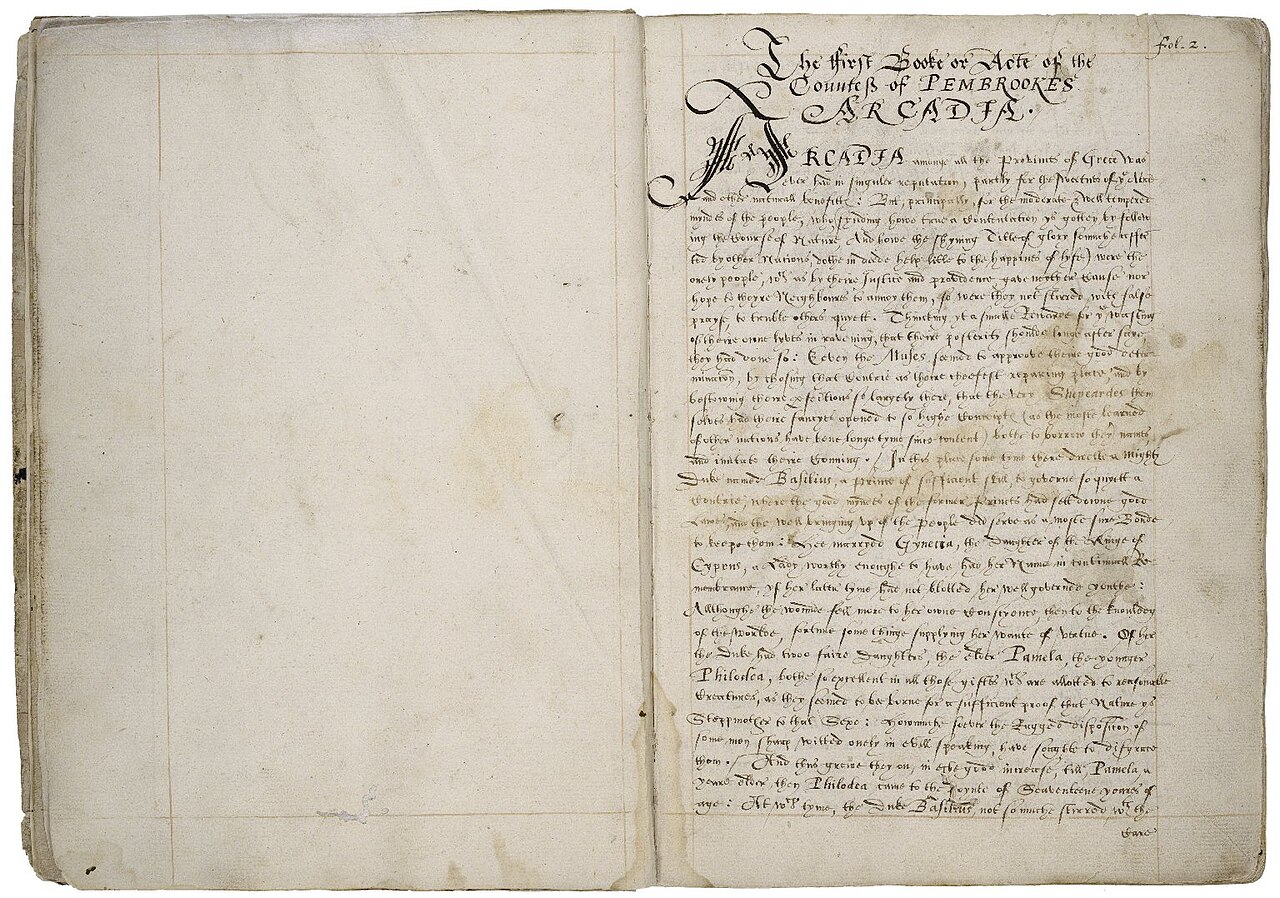 fol. 2.
The first Booke or Acte of the
Countess of PEMBROOKES
ARCADIA.
ARCADIA amonge all the Provinces of Grece was
ever had in singuler reputation, partly for the sweetnes of ye Ayre
and other naturall benefittes: But, principally, for the moderate & well tempered
myndes of the people, who, fynding howe true a Contentation ys gotten by follow
ing the Course of Nature, And howe the shyning Title of glory somuche affec
ted by other Nations, dothe in deede help litle to the happines of lyfe) were the
onely people, wch as by theire Justice and providence, gave neyther Cause nor
hope to theyre Neighboures to annoy them, so were they not stirred with false
prayse, to trouble others quyett. Thincking yt a smalle Rewarde for ye wasting
of theire owne lyves in ravening, that theire posterity shoulde longe after saye,
they had done so: Eeven the Muses seemed to approove theire good deter
minacion, by chosing that Contrie as theire cheefest repairing place, and by
bestowing theire perfections so largely there, that the very Shepeardes them
selves had theire fancyes opened to so highe Conceiptes (as the moste learned
of other nations have bene longe tyme since content) bothe to borrow theyre names,
and imitate theire Conning./ In this place some tyme there dwelte a Mighty
Duke named Basilius, a prince of sufficient skill, to governe so quyett a
Contrie, where the good myndes of the former Princes had sett downe good
Lawes, and the well bringing up of the people did serve as a moste sure Bonde
to keepe them: Hee marryed Gynecia, the Daughter of the Kinge of
Cyprus, a Lady worthy enoughe to have had her Name in continuall Re
membrance, yf her latter tyme had not blotted, her well governed youthe:
Allthoughe the wounde fell more to her owne Conscyence, then to the knowledg
of the worlde, fortune some thinge supplying her wante of vertue. Of her
the Duke had twoo faire Daughters, the elder Pamela, the younger
Philoclea, bothe so excellent in all those giftes wch are allotted to reasonable
Creatures, as they seemed to bee borne for a sufficient proof that Nature ys
Steppmother to that Sexe: howmuche soever the Rugged disposition of
some men sharp witted onely in evill speaking, have soughte to disgrace
them./ And thus grewe they on, in eche good increase, till Pamela, a
yeare elder, then Philoclea came to the poynte of Seaventeene yeares of
age: At wch tyme, the Duke Basilius, not somuche stirred, wth the
Care